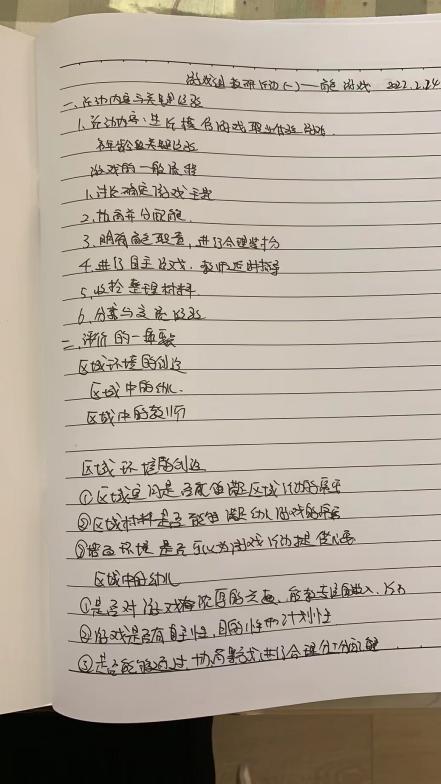 游戏组教研活动(一)——角色游戏 2022.2.24
一、活动内容与关键经验
1、活动内容:生活模仿游戏 职业体验游戏
各年龄段关键经验
游戏的一般流程
1、讨论确定游戏主题
2、协商并分配角色
3、明确角色职责,进行合理装扮
4、进行自主游戏,教师适时指导
5、收拾整理材料
6、分享与交流经验
二、评价的一般要点
区域环境的创设
区域中的幼儿
区域中的教师
区域环境的创设
①区域空间是否能够满足区域活动的需要
②区域材料是否能够满足幼儿游戏的需要
③墙面环境是否可以为游戏活动提供
区域中的幼儿
①是否对游戏有浓厚的兴趣、能够专注的投入
②游戏是否有自主性、目的性和计划性
③是否能够通过协商等方式进行合理分工分配